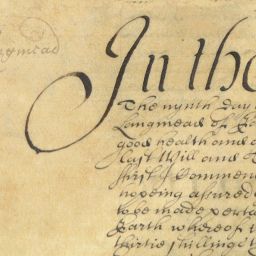 Longmead
In the
The nynth Day
Longmead of
good health and
Last Will and T
first I Commen
hopeing assured
to be made perta
Earth whereof
thirtie shillings